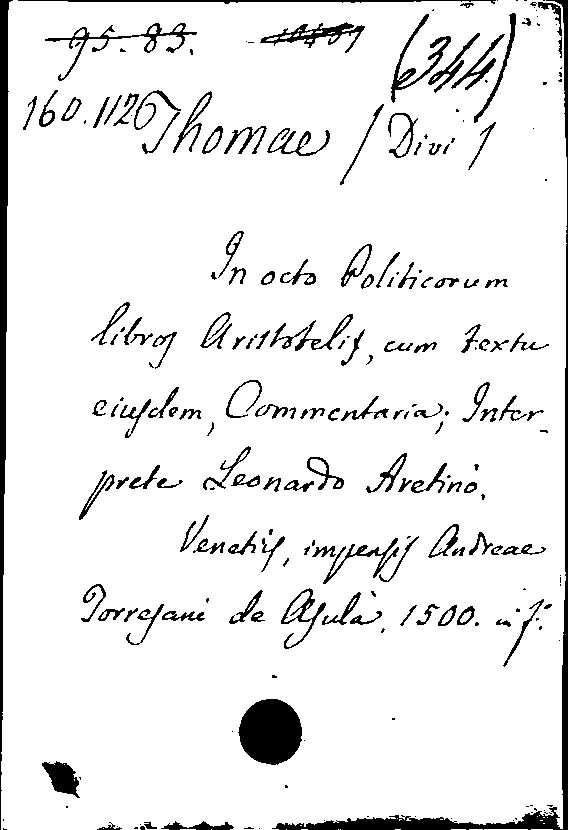 95.83. (344.)
160.112 Thomae / Divi /
In octo Politicorum
libros Aristotelis, cum textu
eiusdem, Commentaria; Inter-
prete Leonardo Aretino.
Venetiis, impensis Andreae
Torresani de Asula, 1500. in f.